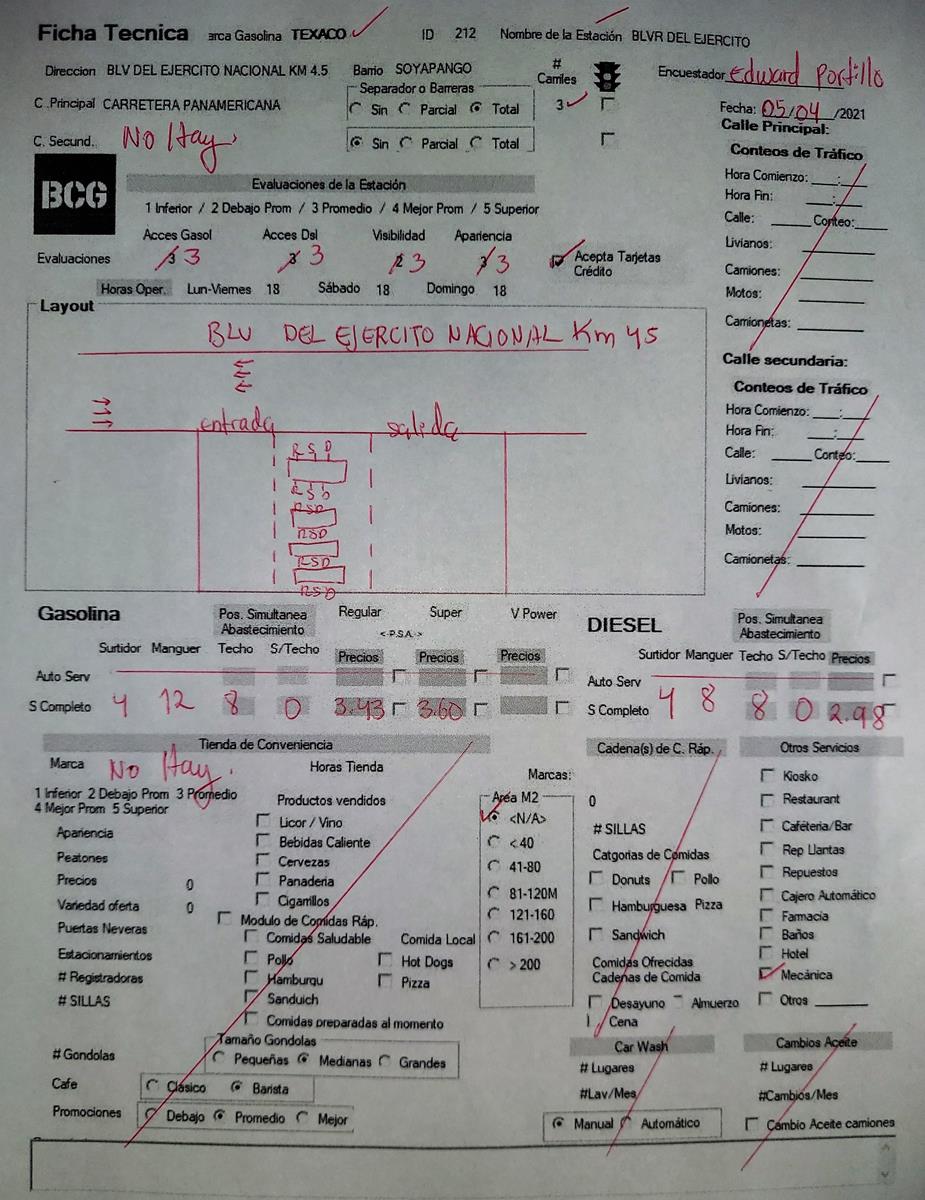 Ficha Tecnica arca Gasolina TEXACO ID 212 Nombre de la Estación BLVR DEL EJERCITO
Direccion BLV DEL EJERCITO NACIONAL KM 4.5 Barrio SOYAPANGO # Carriles Encuestador Edward Portillo
C .Principal CARRETERA PANAMERICANA Separador o Barreras Sin Parcial Total 3 Fecha: 05/04/2021
C. Secund.. No Hay. Sin Parcial Total
Calle Principal:
Conteos de Tráfico
Hora Comienzo: ___:___
Hora Fin: ___:___
Calle: ____ Conteo:____
Livianos:
Camiones:
Motos:
Camionetas:
BCG
Evaluaciones de la Estación
1 Inferior / 2 Debajo Prom / 3 Promedio / 4 Mejor Prom / 5 Superior
Acces Gasol Acces Dsl Visibilidad Apariencia
Evaluaciones 3 3 3 3 2 3 3 3 Acepta Tarjetas Crédito
Horas Oper. Lun-Viernes 18 Sábado 18 Domingo 18
Layout
BLV DEL EJERCITO NACIONAL Km 45
entrada salida
R S D
R S D
RSD
RSD
RSD
RSD
Calle secundaria:
Conteos de Tráfico
Hora Comienzo: ___:___
Hora Fin: ___:___
Calle: ____ Conteo:____
Livianos:
Camiones:
Motos:
Camionetas:
Gasolina Pos. Simultanea Abastecimiento Regular Super V Power
<-P.S.A.->
Surtidor Manguer Techo S/Techo Precios Precios Precios
Auto Serv
S Completo 4 12 8 0 3.43 3.60
DIESEL Pos. Simultanea Abastecimiento
Surtidor Manguer Techo S/Techo Precios
Auto Serv
S Completo 4 8 8 0 2.98
Tienda de Conveniencia
Marca No Hay. Horas Tienda
1 Inferior 2 Debajo Prom 3 Promedio
4 Mejor Prom 5 Superior
Apariencia
Peatones
Precios 0
Variedad oferta 0
Puertas Neveras
Estacionamientos
# Registradoras
# SILLAS
# Gondolas
Cafe Clásico Barista
Promociones Debajo Promedio Mejor
Productos vendidos
Licor / Vino
Bebidas Caliente
Cervezas
Panaderia
Cigarrillos
Modulo de Comidas Ráp.
Comidas Saludable Comida Local
Pollo Hot Dogs
Hamburgu Pizza
Sanduich
Comidas preparadas al momento
Tamaño Gondolas
Pequeñas Medianas Grandes
Marcas:
Area M2
<N/A>
< 40
41-80
81-120M
121-160
161-200
> 200
Cadena(s) de C. Ráp.
0
# SILLAS
Catgorias de Comidas
Donuts Pollo
Hamburguesa Pizza
Sandwich
Comidas Ofrecidas
Cadenas de Comida
Desayuno Almuerzo
Cena
Car Wash
# Lugares
#Lav/Mes
Manual Automático
Otros Servicios
Kiosko
Restaurant
Caféteria/Bar
Rep Llantas
Repuestos
Cajero Automático
Farmacia
Baños
Hotel
Mecánica
Otros ______
Cambios Aceite
# Lugares
#Cambios/Mes
Cambio Aceite camiones